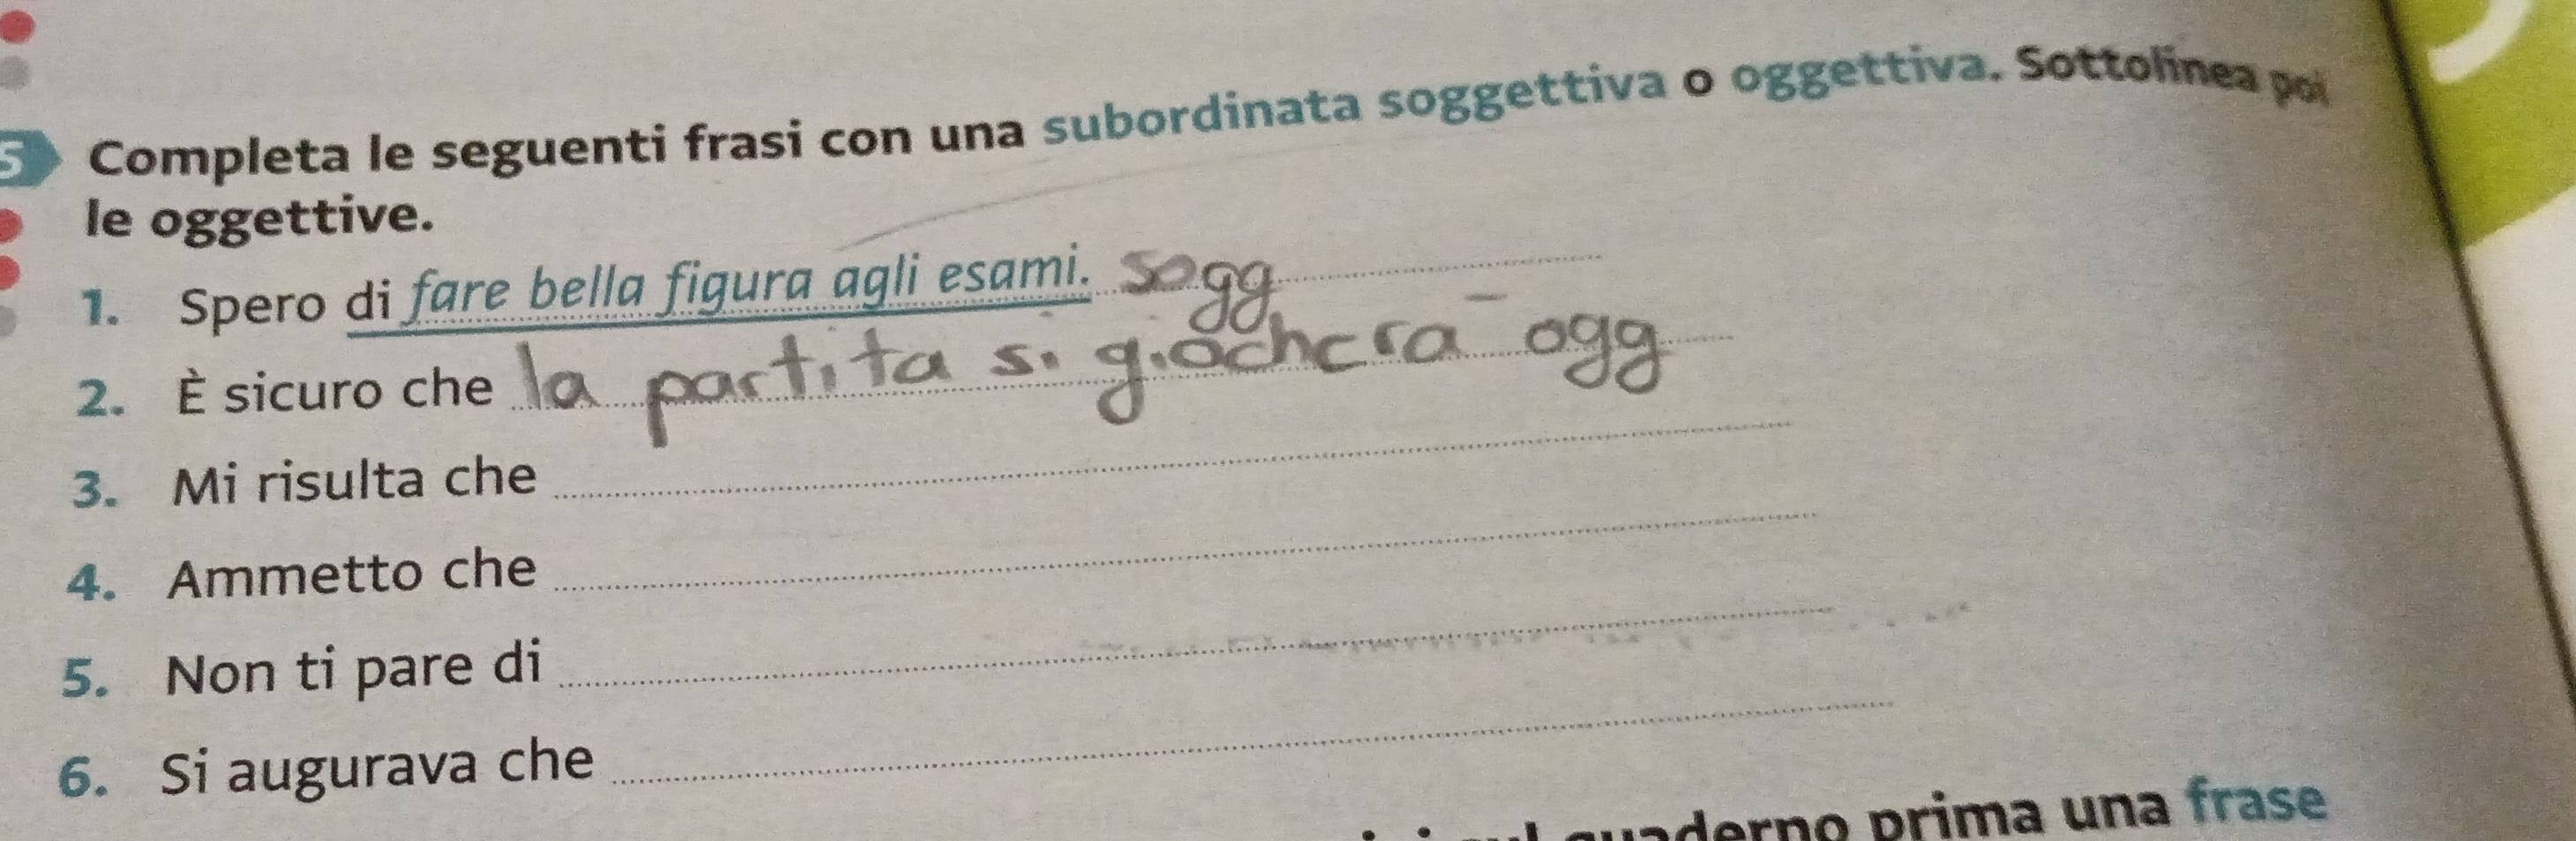 5 Completa le seguenti frasi con una subordinata soggettiva o oggettiva. Sottolinea poi
le oggettive.
1. Spero di fare bella figura agli esami. sogg
2. È sicuro che la partita si giocherà ogg
3. Mi risulta che
4. Ammetto che
5. Non ti pare di
6. Si augurava che
quaderno prima una frase